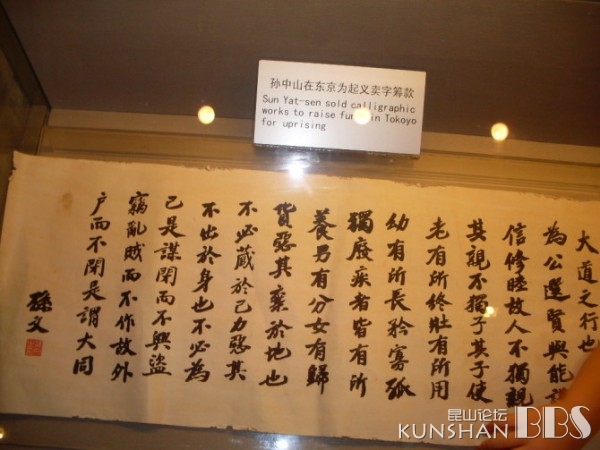 孙中山在东京为起义卖字筹款
Sun Yat-sen sold calligraphic
works to raise in Tokoyo
for uprising
大道之行也
為公選賢與能
信修睦故人不獨親
其親不獨子其子使
老有所終壯有所用
幼有所長矜寡孤
獨廢疾者皆有所
養男有分女有歸
貨惡其棄於地也
不必藏於己力惡其
不出於身也不必為
己是謀閉而不興盜
竊亂賊而不作故外
户而不閉是謂大同
孫文
昆山论坛
KUNSHAN BBS